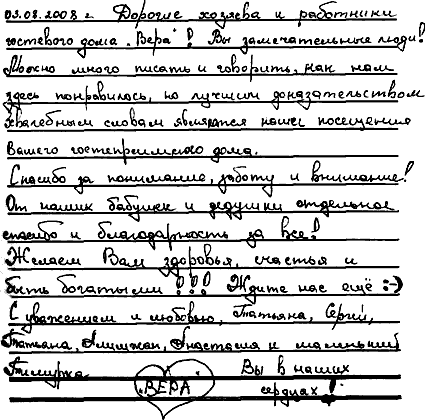 03.08.2008 г. Дорогие хозяева и работники
гостевого дома "Вера"! Вы замечательные люди!
Можно много писать и говорить, как нам
здесь понравилось, но лучшим доказательством
хвалебным словам является наше посещение
Вашего гостеприимского дома.
Спасибо за понимание, заботу и внимание!
От наших бабушек и дедушки отдельное
спасибо и благодарность за все!
Желаем Вам здоровья, счастья и
быть богатыми!!! Ждите нас ещё :-)
С уважением и любовью, Татьяна, Сергей,
Татьяна, Алишжан, Анастасия и маленький
Тимурка. Вы в наших
ВЕРА сердцах!